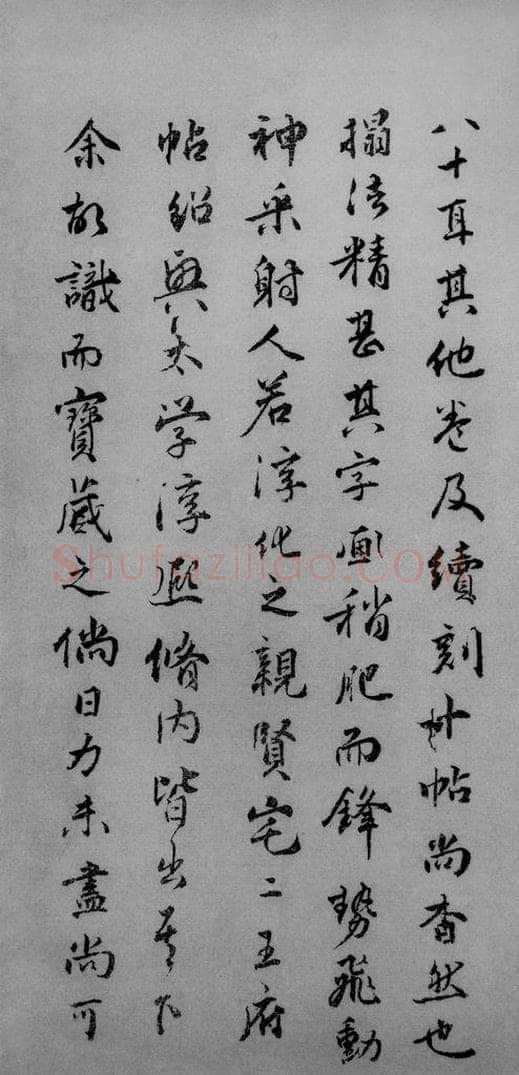 八十耳其他卷及續刻廿帖尚杳然也
搨法精甚其字画稍肥而鋒勢飛動
神采射人若淳化之親賢宅二王府
帖紹興太学淳熙脩内皆出其下
余故識而寶藏之倘日力未盡尚可
Shufaziliao.COM